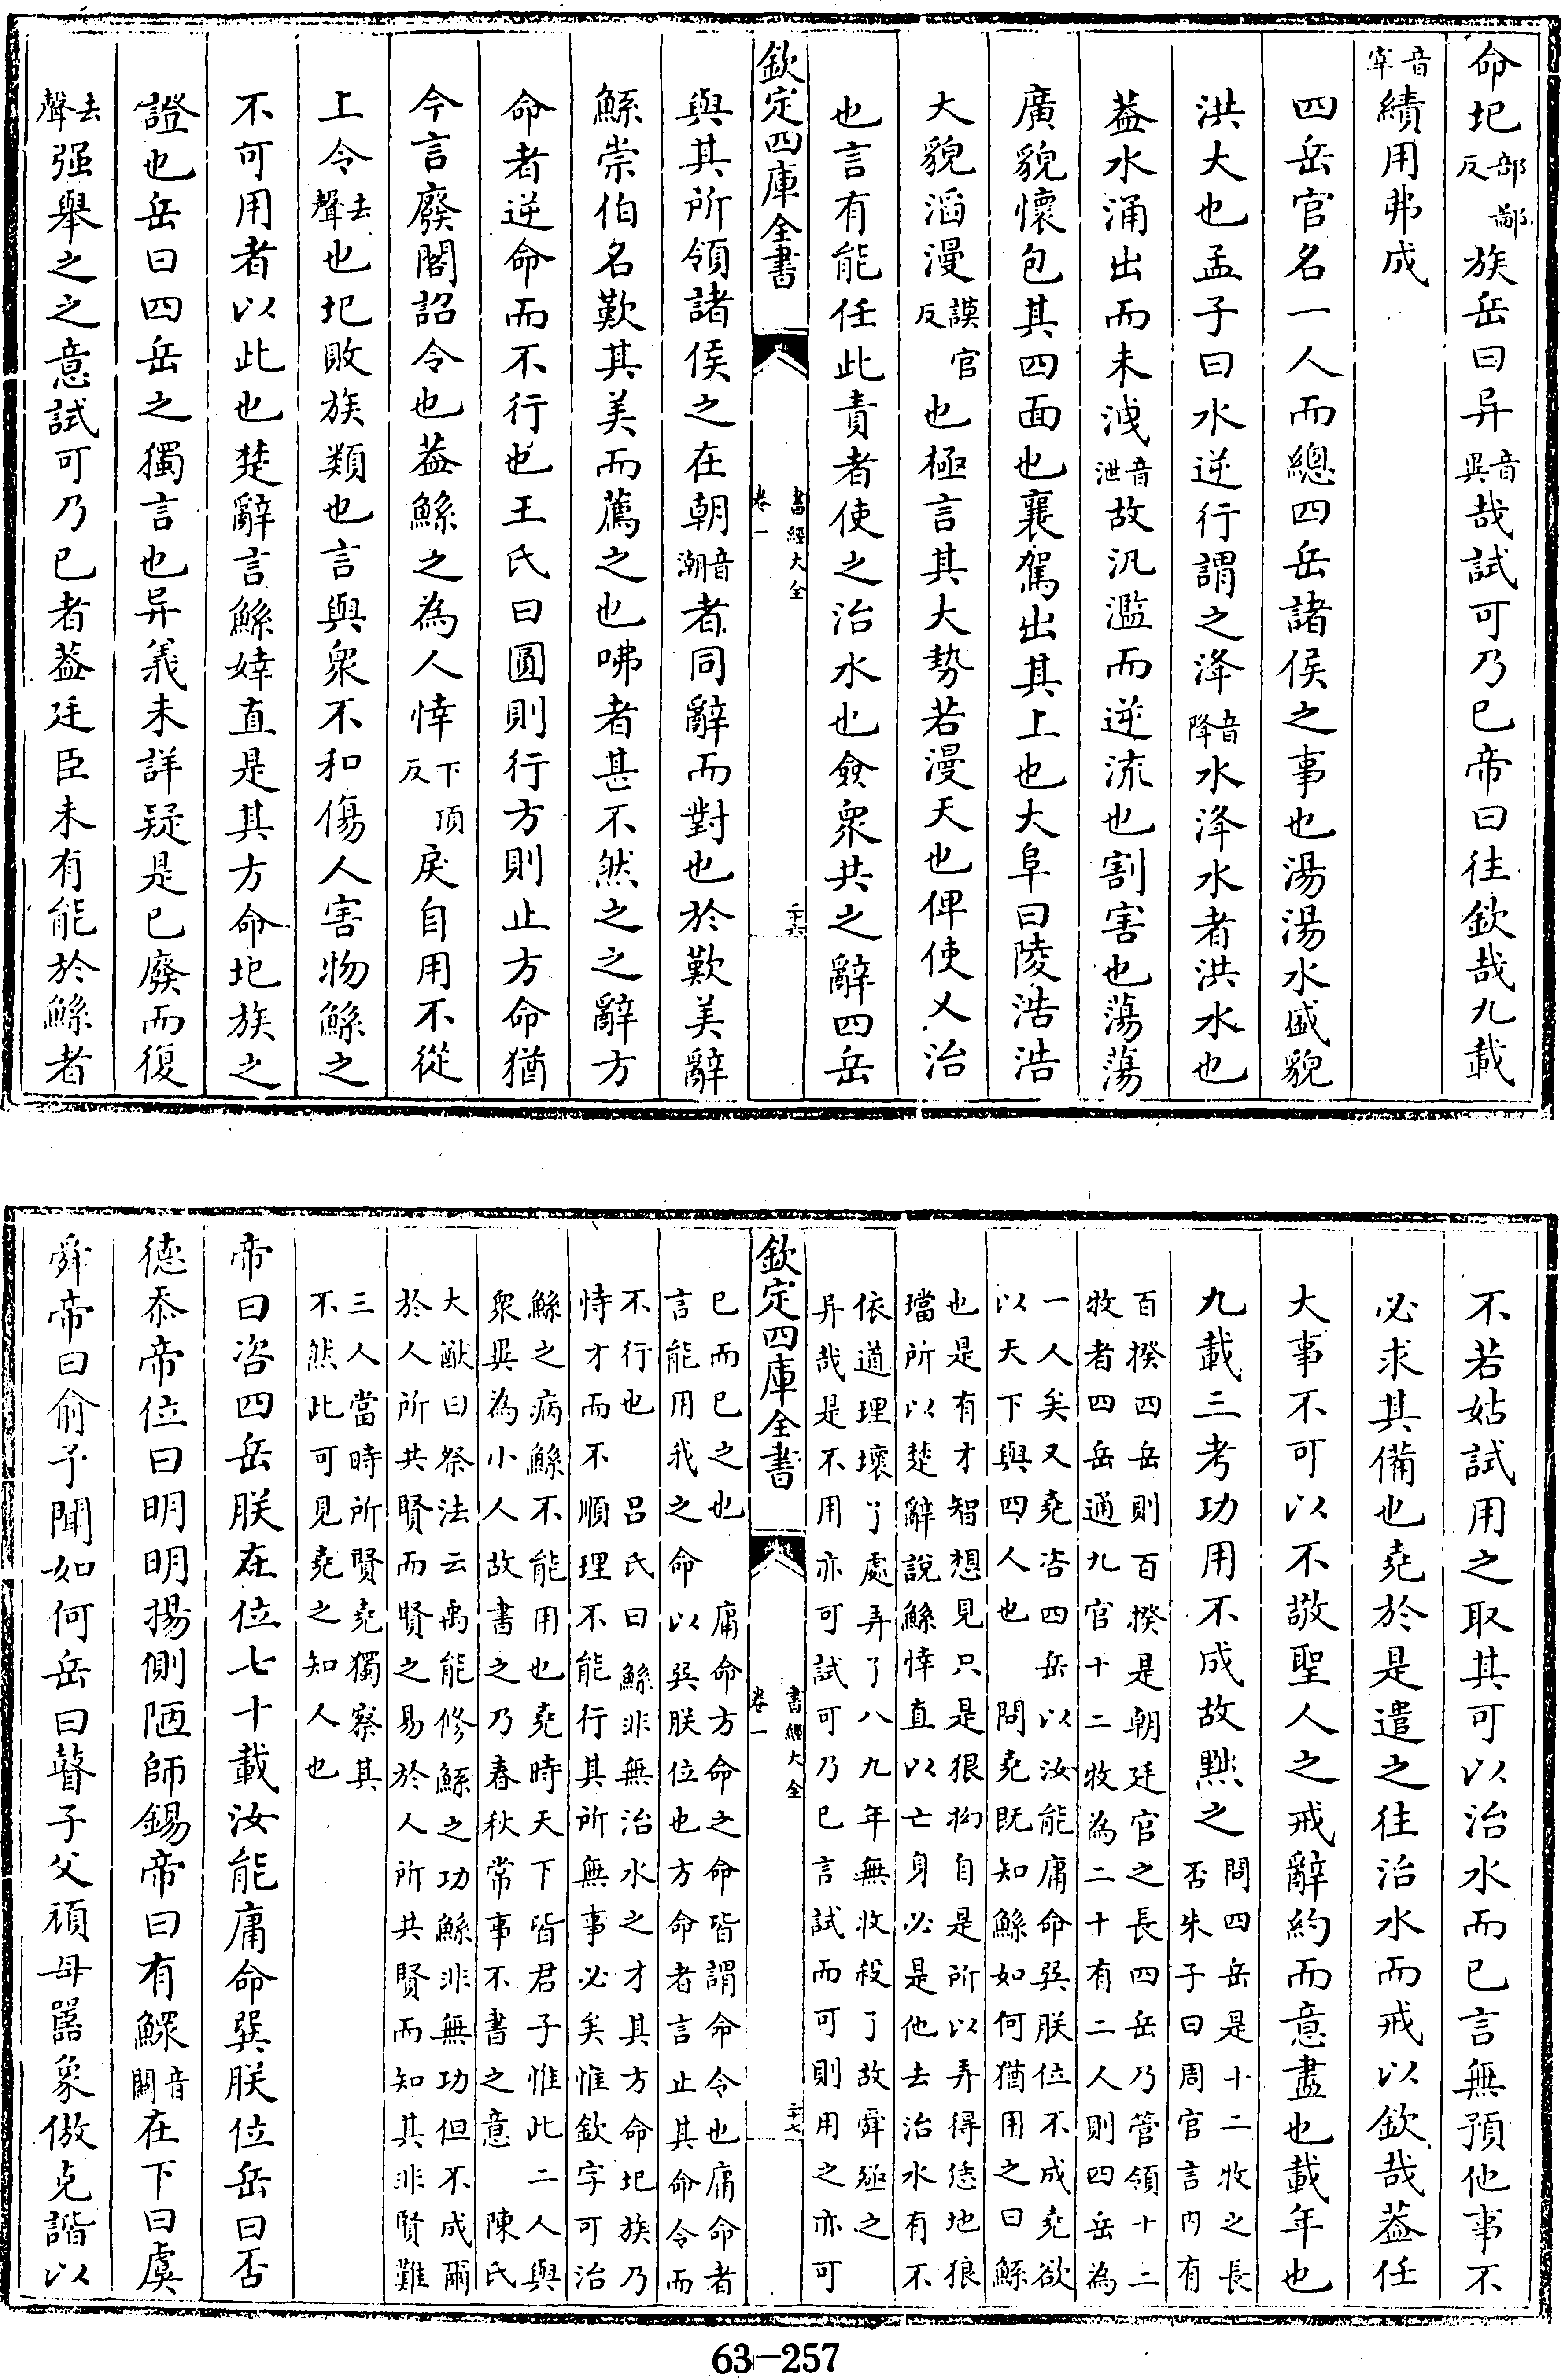 命圮部鄙反族岳曰异音異哉試可乃已帝曰往欽哉九載
音宰績用弗成
四岳官名一人而總四岳諸侯之事也湯湯水盛貌
洪大也孟子曰水逆行謂之洚音降水洚水者洪水也
葢水涌出而未洩音泄故汎濫而逆流也割害也蕩蕩
廣貌懷包其四面也襄駕出其上也大阜曰陵浩浩
大貌滔漫謨官反也極言其大勢若漫天也俾使乂治
也言有能任此責者使之治水也僉衆共之辭四岳
欽定四庫全書 書經大全 卷一 二十六
與其所領諸侯之在朝音潮者同辭而對也於歎美辭
鯀崇伯名歎其美而薦之也咈者甚不然之之辭方
命者逆命而不行也王氏曰圓則行方則止方命猶
今言廢閣詔令也葢鯀之為人悻下頂反戾自用不從
上令去聲也圮敗族類也言與衆不和傷人害物鯀之
不可用者以此也楚辭言鯀婞直是其方命圮族之
證也岳曰四岳之獨言也异義未詳疑是已廢而復
去聲强舉之之意試可乃已者葢廷臣未有能於鯀者
不若姑試用之取其可以治水而已言無預他事不
必求其備也堯於是遣之往治水而戒以欽哉葢任
大事不可以不敬聖人之戒辭約而意盡也載年也
九載三考功用不成故黜之問四岳是十二牧之長否朱子曰周官言内有
百揆四岳則百揆是朝廷官之長四岳乃管領十二
牧者四岳通九官十二牧為二十有二人則四岳為
一人矣又堯咨四岳以汝能庸命巽朕位不成堯欲
以天下與四人也 問堯既知鯀如何猶用之曰鯀
也是有才智想見只是狠拗自是所以弄得恁地狼
璫所以楚辭說鯀悻直以亡身必是他去治水有不
依道理壞了處弄了八九年無收殺了故舜殛之
异哉是不用亦可試可乃已言試而可則用之亦可
欽定四庫全書 書經大全 卷一 二十七
已而已之也 庸命方命之命皆謂命令也庸命者
言能用我之命以巽朕位也方命者言止其命令而
不行也 呂氏曰鯀非無治水之才其方命圮族乃
恃才而不順理不能行其所無事必矣惟欽字可治
鯀之病鯀不能用也堯時天下皆君子惟此二人與
衆異為小人故書之乃春秋常事不書之意 陳氏
大猷曰祭法云禹能修鯀之功鯀非無功但不成爾
於人所共賢而賢之易於人所共賢而知其非賢難
三人當時所賢堯獨察其
不然此可見堯之知人也
帝曰咨四岳朕在位七十載汝能庸命巽朕位岳曰否
德忝帝位曰明明揚側陋師錫帝曰有鰥音關在下曰虞
舜帝曰俞予聞如何岳曰瞽子父頑母嚚象傲克諧以
63-257